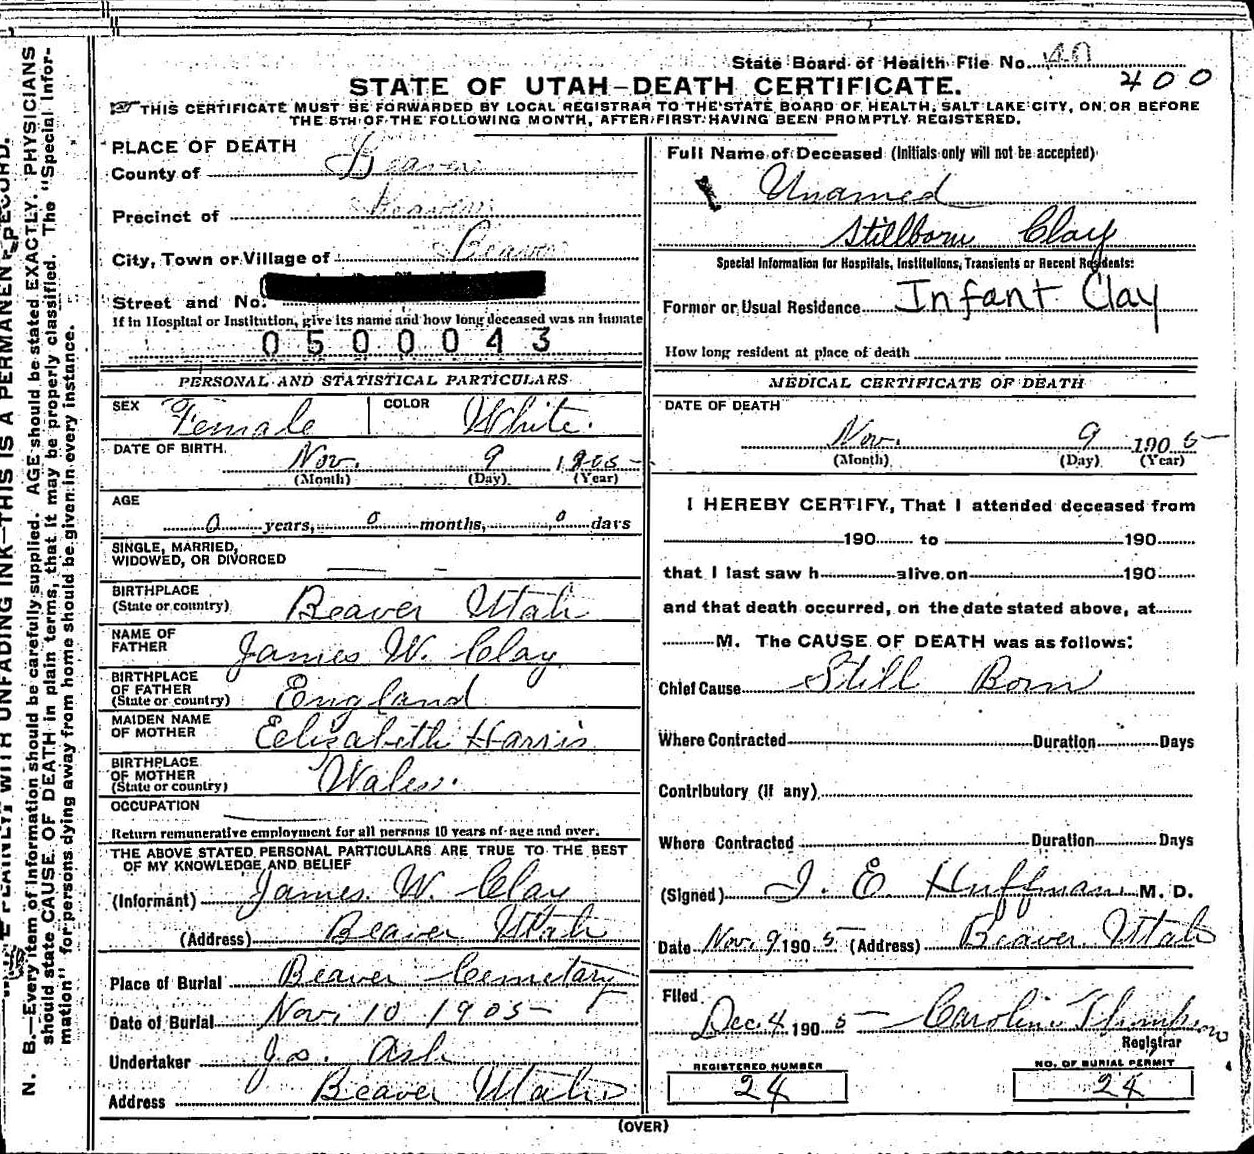 State Board of Health File No.
400
STATE OF UTAH-DEATH CERTIFICATE.
THIS CERTIFICATE MUST BE FORWARDED BY LOCAL REGISTRAR TO THE STATE BOARD OF HEALTH, SALT LAKE CITY, ON OR BEFORE
THE 5TH OF THE FOLLOWING MONTH, AFTER FIRST HAVING BEEN PROMPTLY REGISTERED.
PLACE OF DEATH
County of Beaver
Precinct of Beaver
City, Town or Village of Beaver
Street and No.
If in Hospital or Institution, give its name and how long deceased was an inmate
0500043
PERSONAL AND STATISTICAL PARTICULARS
SEX Female COLOR White.
DATE OF BIRTH. Nov. 9 1905
(Month) (Day) (Year)
AGE
0 years, 0 months, 0 days
SINGLE, MARRIED,
WIDOWED, OR DIVORCED
BIRTHPLACE
(State or country) Beaver Utah
NAME OF
FATHER James W. Clay
BIRTHPLACE
OF FATHER
(State or country) England
MAIDEN NAME
OF MOTHER Elizabeth Harris
BIRTHPLACE
OF MOTHER
(State or country) Wales.
OCCUPATION
Return remunerative employment for all persons 10 years of age and over.
THE ABOVE STATED PERSONAL PARTICULARS ARE TRUE TO THE BEST
OF MY KNOWLEDGE AND BELIEF
(Informant) James W. Clay
(Address) Beaver Utah
Place of Burial Beaver Cemetary
Date of Burial Nov. 10 1905
Undertaker Jos. Ash
Address Beaver Utah
Full Name of Deceased (Initials only will not be accepted)
Unamed
Stillborn Clay
Special Information for Hospitals, Institutions, Transients or Recent Residents:
Former or Usual Residence Infant Clay
How long resident at place of death
MEDICAL CERTIFICATE OF DEATH
DATE OF DEATH
Nov. 9 1905
(Month) (Day) (Year)
I HEREBY CERTIFY, That I attended deceased from
190 to 190
that I last saw h alive on 190
and that death occurred, on the date stated above, at
M. The CAUSE OF DEATH was as follows:
Chief Cause Still Born
Where Contracted Duration Days
Contributory (if any)
Where Contracted Duration Days
(Signed) J. E. Huffman M. D.
Date Nov. 9 1905 (Address) Beaver Utah
Filed
Dec. 4 1905 Caroline
Registrar
REGISTERED NUMBER
24
NO. OF BURIAL PERMIT
24
(OVER)
N. B.—Every item of information should be carefully supplied. AGE should be stated EXACTLY. PHYSICIANS
should state CAUSE OF DEATH in plain terms, that it may be properly classified. The "Special Infor-
mation" for persons dying away from home should be given in every instance.
PLAINLY, WITH UNFADING INK—THIS IS A PERMANENT RECORD.